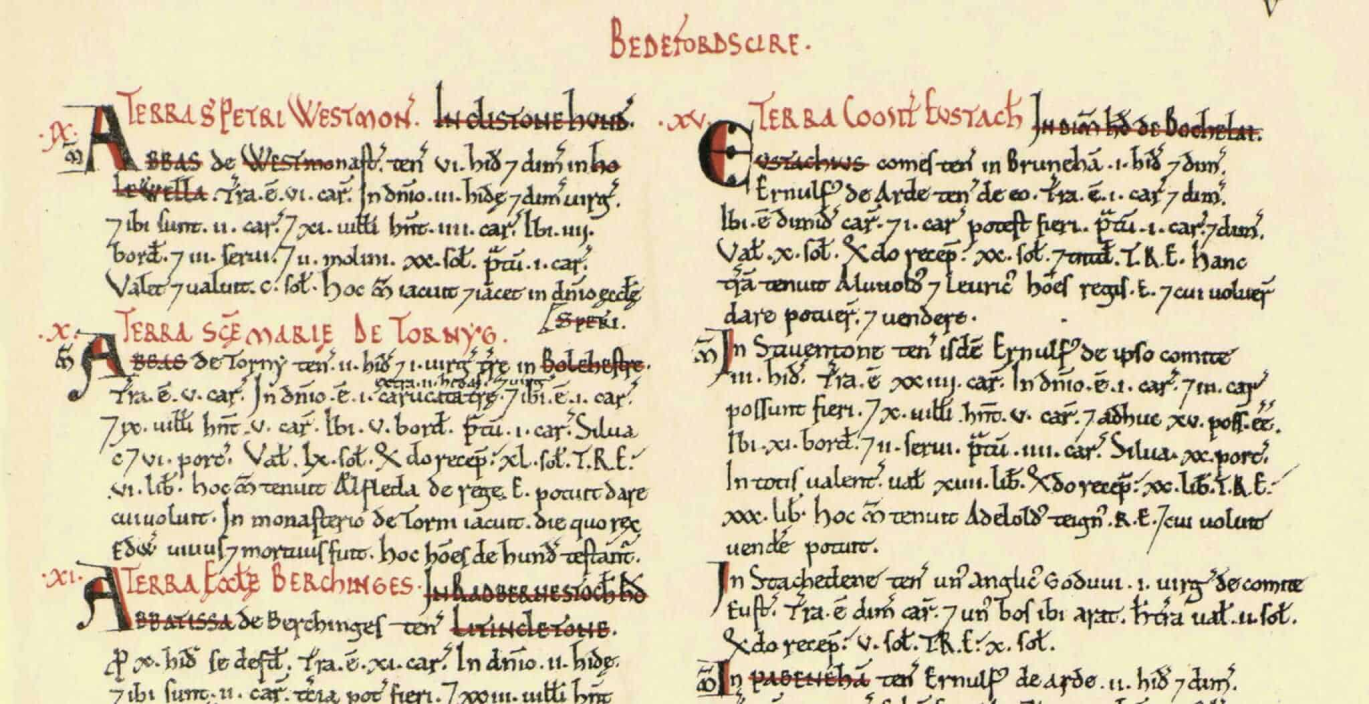 BEDEFORDSCIRE.
V
.IX. TERRA S̄ PETRI WESTMON̄. IN CLISTONE HUND̄.
M̄ ABBAS de Westmonast̄. ten̄ .vi. hid̄ 7 dim̄ in ho
lewella. Tr̄a. ē. vi. car̄. In dn̄io .iii. hidę 7 dim̄ virḡ.
7 ibi sunt. ii. car̄. 7 xi. uill̄i hn̄t. iiii. car̄. Ibi. iiii.
bord̄. 7 iii. serui. 7 ii. molini. xx. sol̄. p̄tū. i. car̄.
Valet 7 ualuit. c. sol̄. Hoc M̄ iacuit 7 iacet in dn̄io ęccl̄ę
S PETRI.
.X. TERRA SC̄E MARIE DE TORNYG.
M̄ ABBAS de Torny ten̄. ii. hid̄ 7 i. uirg̃ tr̄ę in Bolehestre.
Tr̄a. ē. v. car̄. In dn̄io. ē. i. carucata tr̄ę extra. ii. hidas. 7 i uirg̃ 7 ibi. ē. i. car̄.
7 ix. uill̄i hn̄t. v. car̄. Ibi. v. bord̄. p̄tū. i. car̄. Silua
c 7 vi. porc̄. Val̄. lx. sol̄. Q̄do recep̄: xl. sol̄. T.R.E:
.vi. lib̄. hoc M̄ tenuit Ælfleda de rege. E. potuit dare
cui uoluit. In monasterio de Torni iacuit. die quo rex
Edw̄ uiuus 7 mortuus fuit. hoc hōes de hund̄ testant̄.
.XI. TERRA ECCL̄E BERCHINGES. IN RADBERNESTOCH HD̄
ABBATISSA de Berchinges ten̄ LITINCLETONE.
ꝓ x. hid̄ se defd̄. Tr̄a. ē. xi. car̄. In dn̄io .ii. hidę.
7 ibi sunt. ii. car̄. tcia pot̄ fieri. 7 xxiii. uill̄i hn̄t
.XV. TERRA COMIT̄ EUSTACH̄ IN DIM̄ HD̄ DE BOCHELAI.
EUSTACHIUS comes ten̄ in Brunehā. i. hid̄ 7 dim̄.
Ernulf̄ de Arde ten̄ de eo. Tr̄a. ē. i. car̄ 7 dim̄.
Ibi. ē dimid̄ car̄. 7 i. car̄ potest fieri. p̄tū. i. car̄. 7 dim̄.
Val̄. x. sol̄. Q̄do recep̄: xx. sol̄. 7 tntd̄. T.R.E. Hanc
tr̄a tenuit Aluuold̄ 7 Leuric̄ hōes regis. E. 7 cui uoluer̄
dare potuer̄. 7 uendere.
M̄ In Stauentone ten̄ isdē Ernulf̄ de ipso comite
.iii. hid̄. Tr̄a. ē xxiiii. car̄. In dn̄io. ē. i. car̄. 7 iii. car̄
possunt fieri. 7 x. uill̄i hn̄t. v. car̄. 7 adhuc xv. poss. ēē.
Ibi. xi. bord̄. 7 ii. serui. p̄tū. iiii. car̄. Silua. xx. porc̄.
In totis ualent̄. ual̄ xviii. lib̄. Q̄do recep̄: xx. lib̄. T.R.E:
xxx. lib̄. hoc M̄ tenuit Adelold̄ teign̄. R.E. 7 cui uoluit
uend̄e potuit.
In Stachedene ten̄ un̄ anglic̄ Goduui. i. uirg̃ de comite
Eust̄. Tr̄a. ē dim̄ car̄. 7 un̄ bos ibi arat. h tr̄a ual̄. ii. sol̄.
Q̄do recep̄: v. sol̄. T.R.E: x. sol̄.
M̄ In PABENEHĀ ten̄ Ernulf̄ de arde. ii. hid̄ 7 dim̄.